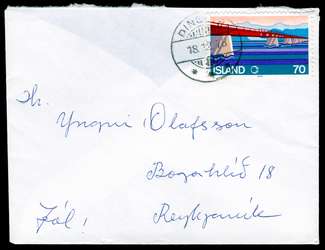 18.12
ÍSLAND 70
Hr.
Yngvi Ólafsson
Bogahlíð 18
Jól! Reykjavík